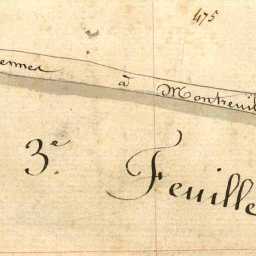 475
ennes à Montreuil
3e Feuille